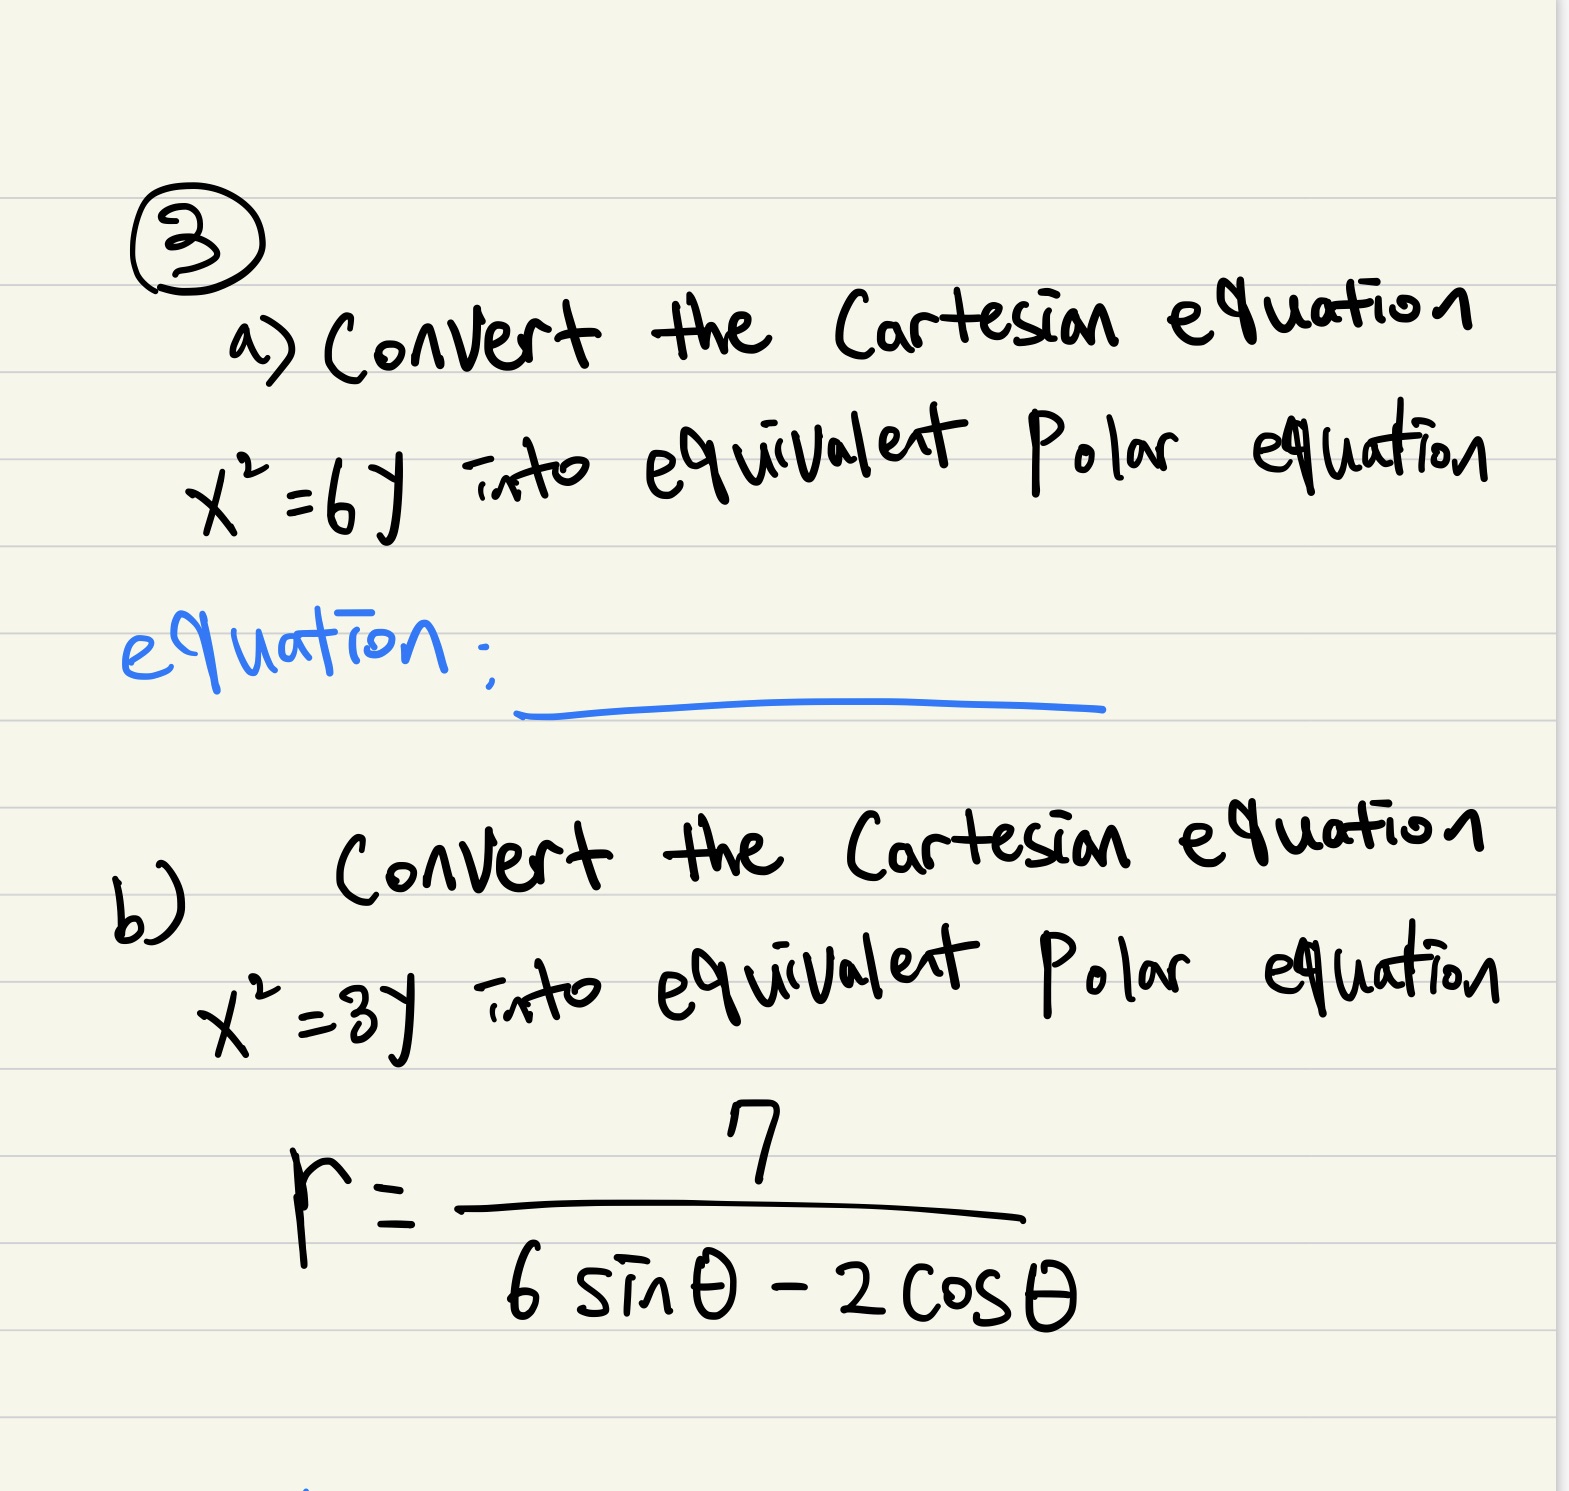 3
a) Convert the Cartesian equation
x² = 6y into equivalent Polar equation
equation:
b) Convert the Cartesian equation
x² = 3y into equivalent Polar equation
r = 7 / (6 sinθ - 2 cosθ)